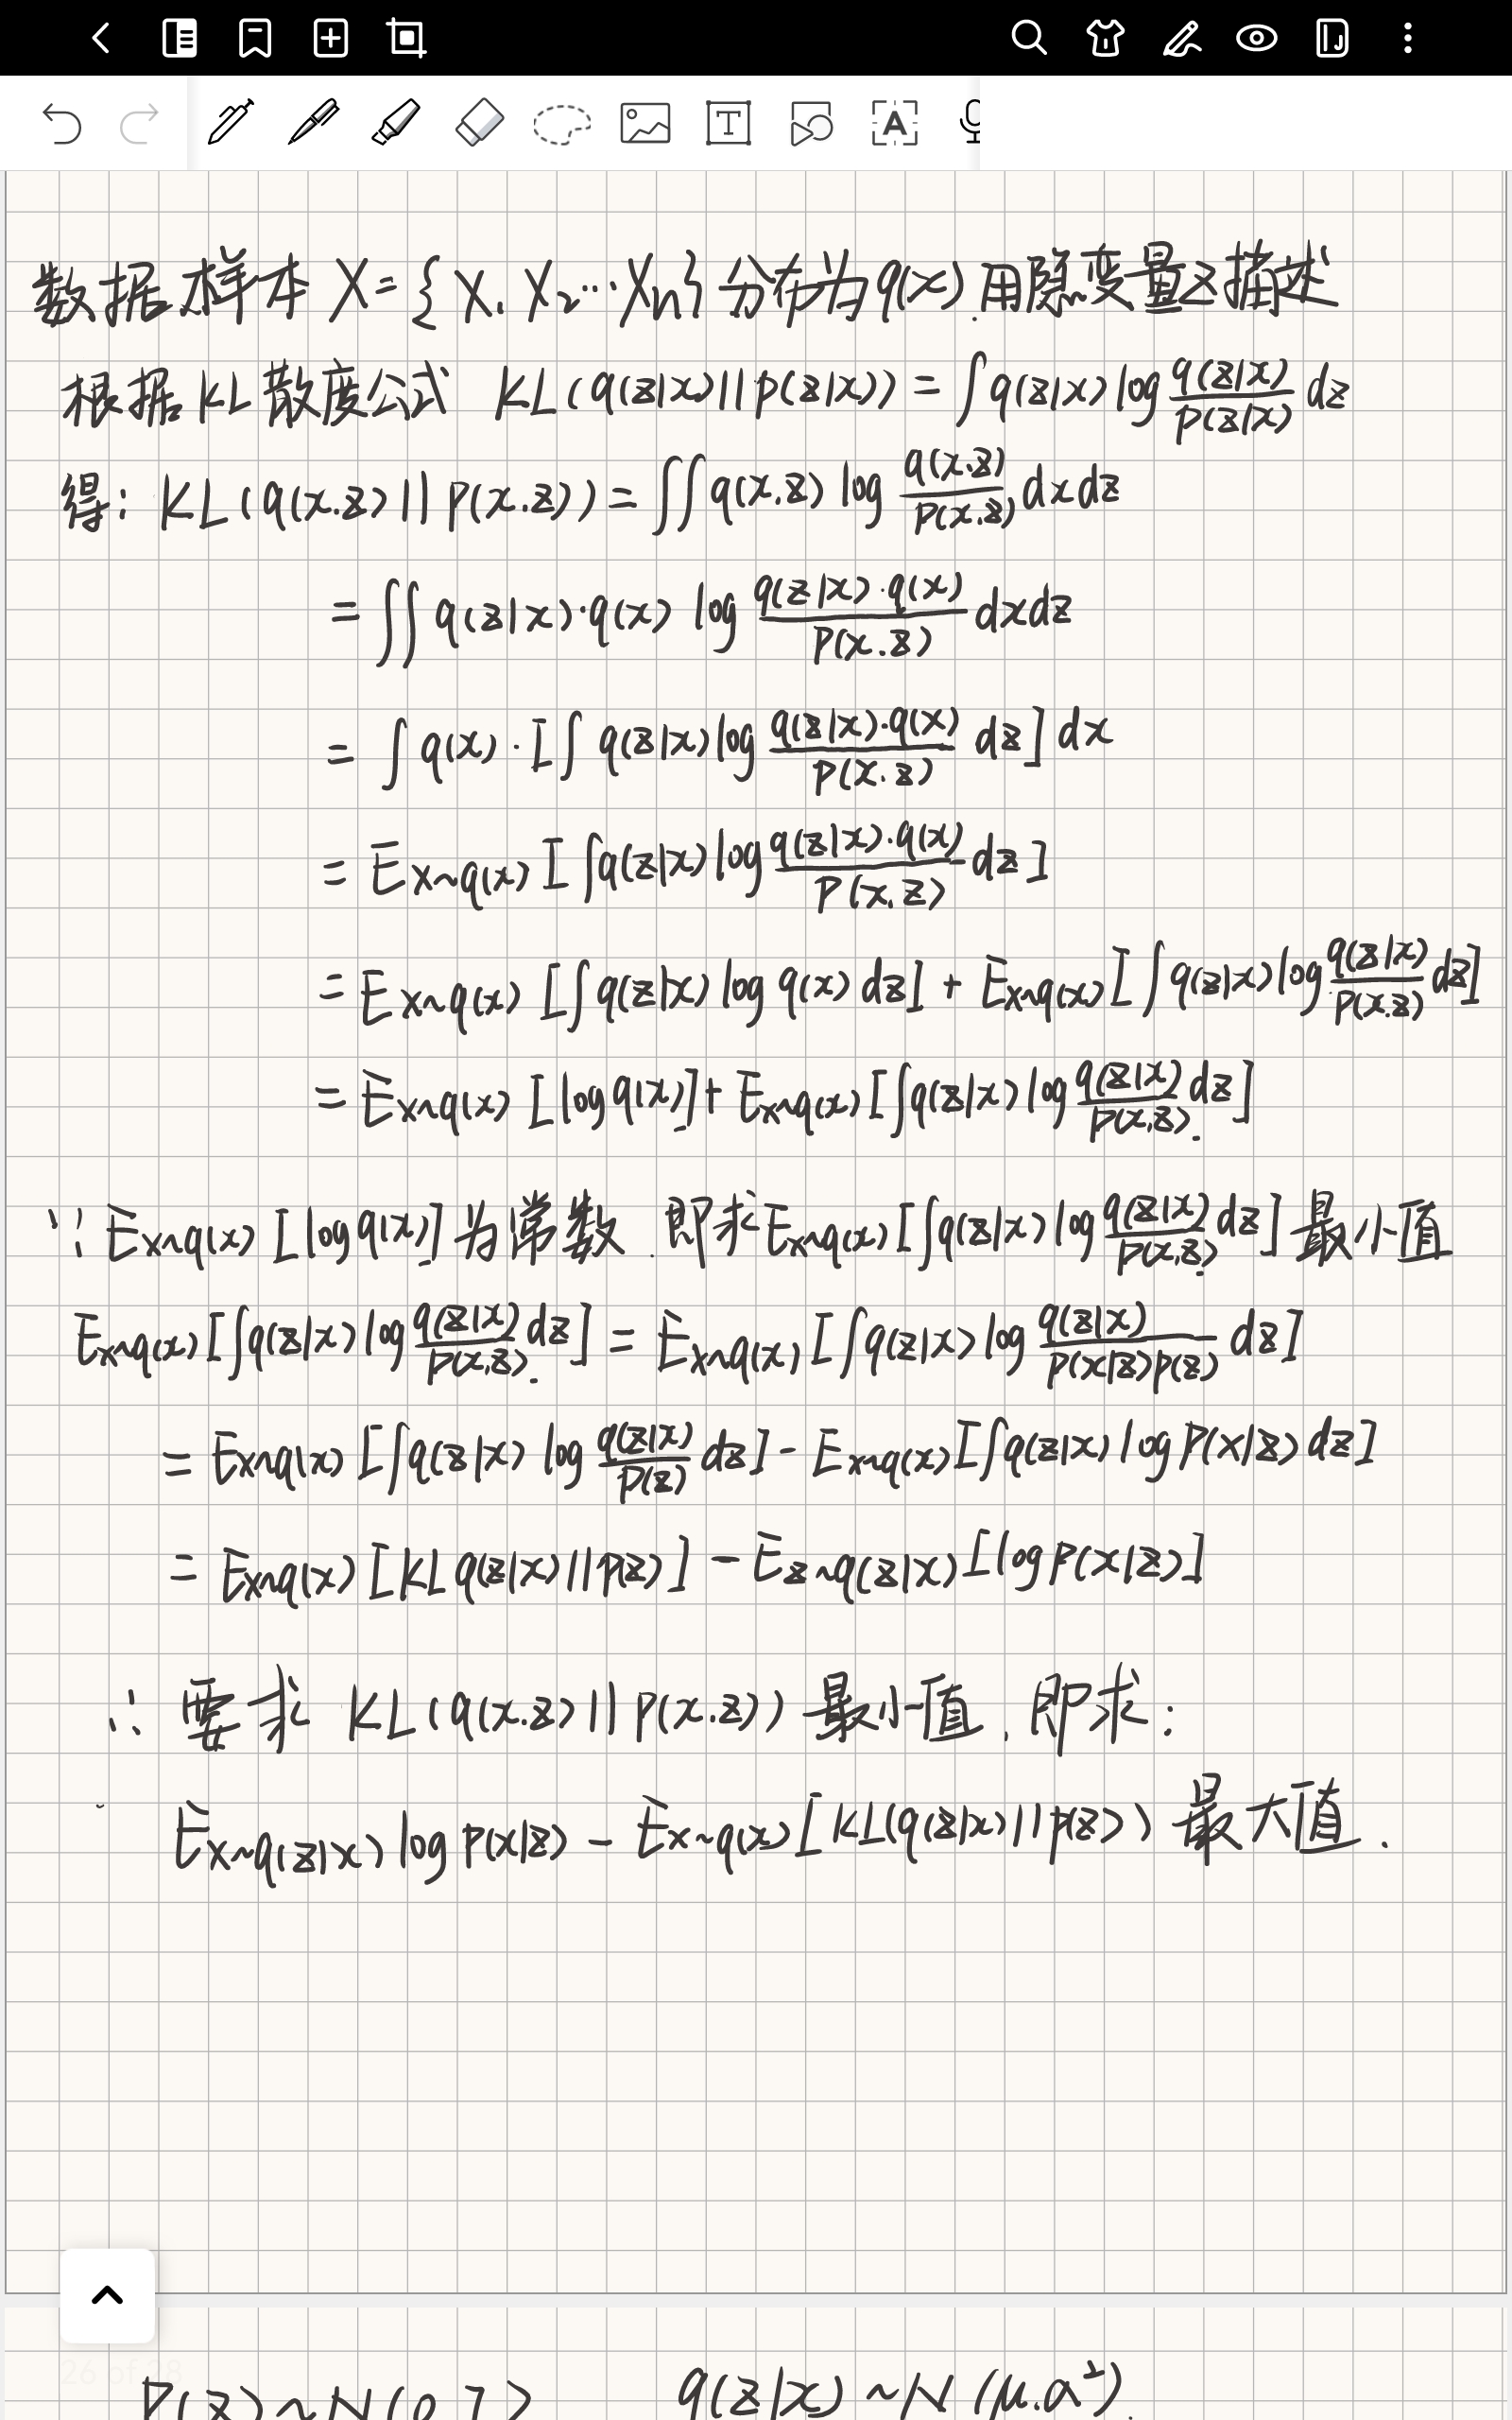 数据样本 X={X₁ X₂…Xn} 分布为q(x).用隐变量z描述
根据KL散度公式 KL(q(z|x)||p(z|x)) = ∫q(z|x) log q(z|x)/p(z|x) dz
得: KL(q(x.z)||p(x.z)) = ∫∫q(x.z) log q(x.z)/p(x.z) dxdz
= ∫∫ q(z|x)·q(x) log q(z|x)·q(x)/p(x.z) dxdz
= ∫ q(x)·[∫ q(z|x) log q(z|x)·q(x)/p(x.z) dz] dx
= E x~q(x) [∫q(z|x) log q(z|x)·q(x)/p(x,z) dz]
= E x~q(x) [∫q(z|x) log q(x) dz] + E x~q(x) [∫q(z|x) log q(z|x)/p(x.z) dz]
= E x~q(x) [log q(x)] + E x~q(x) [∫q(z|x) log q(z|x)/p(x,z) dz]
∵ E x~q(x) [log q(x)] 为常数.即求 E x~q(x) [∫q(z|x) log q(z|x)/p(x,z) dz] 最小值
E x~q(x) [∫q(z|x) log q(z|x)/p(x,z) dz] = E x~q(x) [∫q(z|x) log q(z|x)/p(x|z)p(z) dz]
= E x~q(x) [∫q(z|x) log q(z|x)/p(z) dz] - E x~q(x) [∫q(z|x) log p(x|z) dz]
= E x~q(x) [KL q(z|x)||p(z)] - E z~q(z|x) [log p(x|z)]
∴ 要求 KL(q(x.z)||p(x.z)) 最小值.即求:
E x~q(z|x) log p(x|z) - E x~q(x) [KL(q(z|x)||p(z)) 最大值.
26 of 28
q(z|x) ~N (μ.σ²).